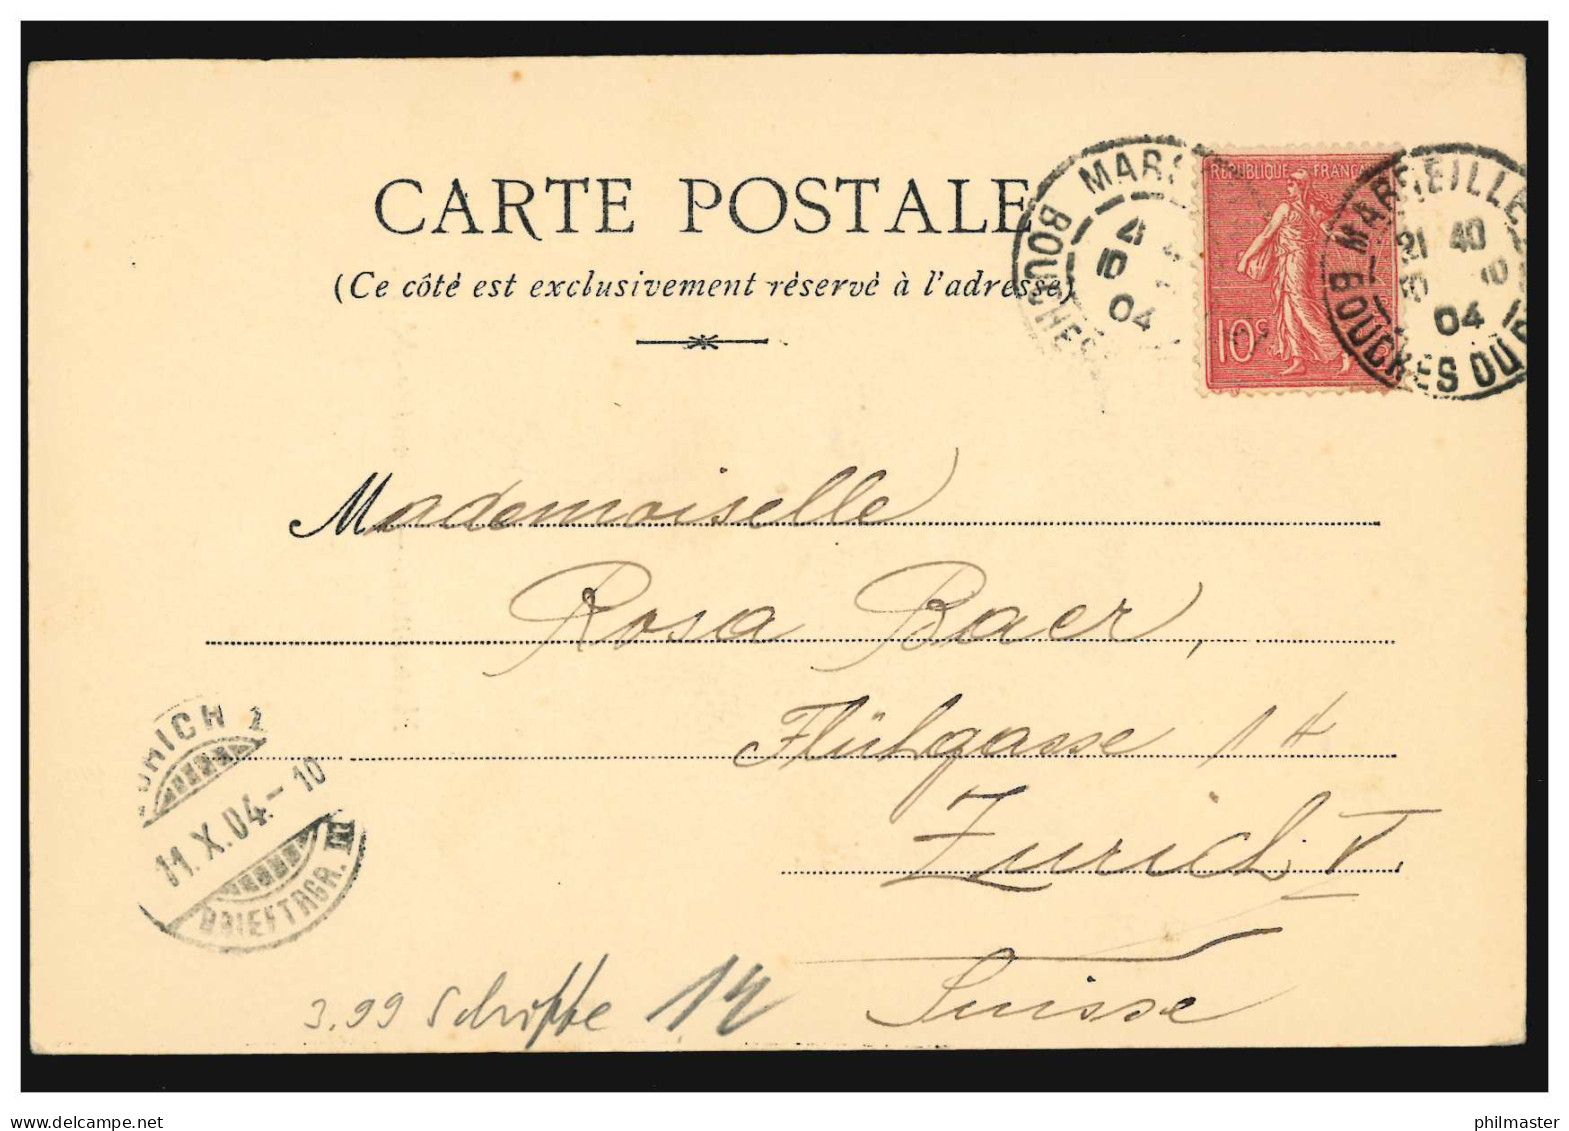 CARTE POSTALE
(Ce côté est exclusivement réservé à l'adresse)
MARS
BOUCHES
10
04
REPUBLIQUE FRANÇAISE
10c
MARSEILLE
21 40
10 10
04
BOUCHES DU R
Mademoiselle
Rosa Baer,
Flühgasse 14
Zurich V.
Suisse
ZÜRICH 1
11.X.04.-10
BRIEFTRGR. III
3.99 Schiffe 14
delcampe.net
philmaster